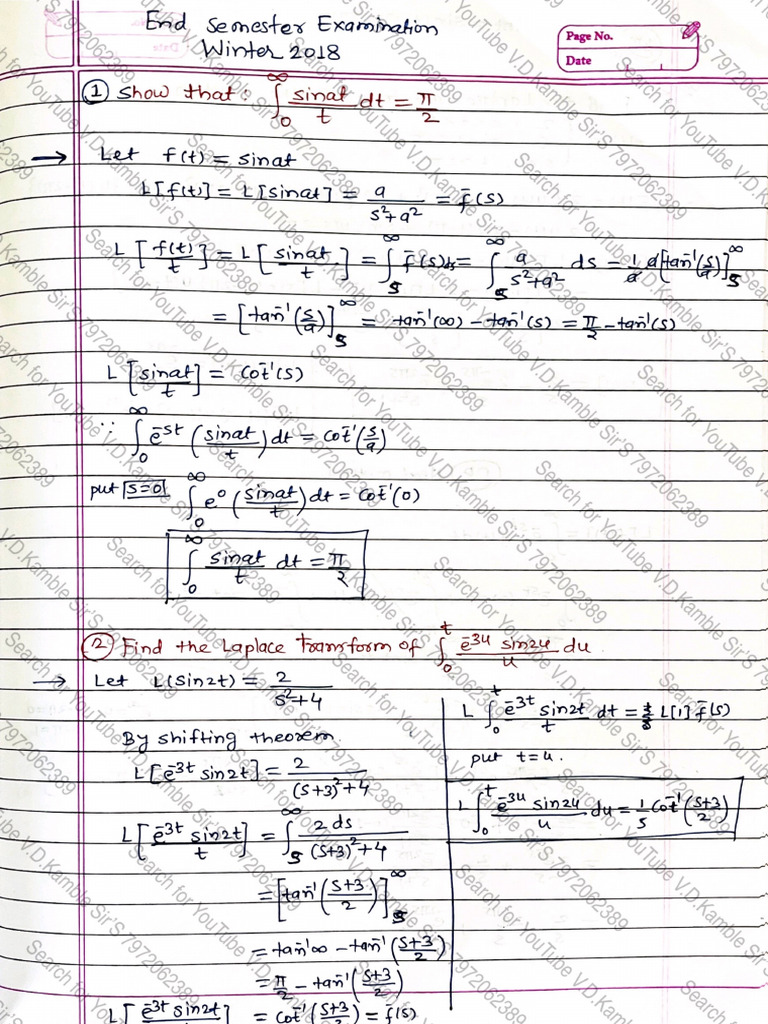 End Semester Examination
Winter 2018
Page No.
Date
① Show that: ∫₀^∞ sinat/t dt = π/2
→ Let f(t) = sinat
L[f(t)] = L[sinat] = a/(s²+a²) = f̄(s)
L[f(t)/t] = L[sinat/t] = ∫ₛ^∞ f̄(s)ds = ∫ₛ^∞ a/(s²+a²) ds = 1/a · a[tan⁻¹(s/a)]ₛ^∞
= [tan⁻¹(s/a)]ₛ^∞ = tan⁻¹(∞) - tan⁻¹(s) = π/2 - tan⁻¹(s)
L[sinat/t] = cot⁻¹(s)
∵ ∫₀^∞ e⁻ˢᵗ (sinat/t) dt = cot⁻¹(s/a)
put s=0 ∫₀^∞ e⁰ (sinat/t) dt = cot⁻¹(0)
∫₀^∞ sinat/t dt = π/2
② Find the Laplace Transform of ∫₀ᵗ e⁻³ᵘ sin2u/u du
→ Let L(sin2t) = 2/(s²+4)
By shifting theorem
L[e⁻³ᵗ sin2t] = 2/((s+3)²+4)
L[e⁻³ᵗ sin2t/t] = ∫ₛ^∞ 2ds/((s+3)²+4)
= [tan⁻¹((s+3)/2)]ₛ^∞
= tan⁻¹∞ - tan⁻¹((s+3)/2)
= π/2 - tan⁻¹((s+3)/2)
L[e⁻³ᵗ sin2t/t] = cot⁻¹((s+3)/2) = f(s)
L ∫₀ᵗ e⁻³ᵗ sin2t/t dt = L[1] f̄(s)
put t=u.
L ∫₀ᵗ e⁻³ᵘ sin2u/u du = 1/s cot⁻¹((s+3)/2)
Search for YouTube V.D.Kamble Sir'S 7972062389